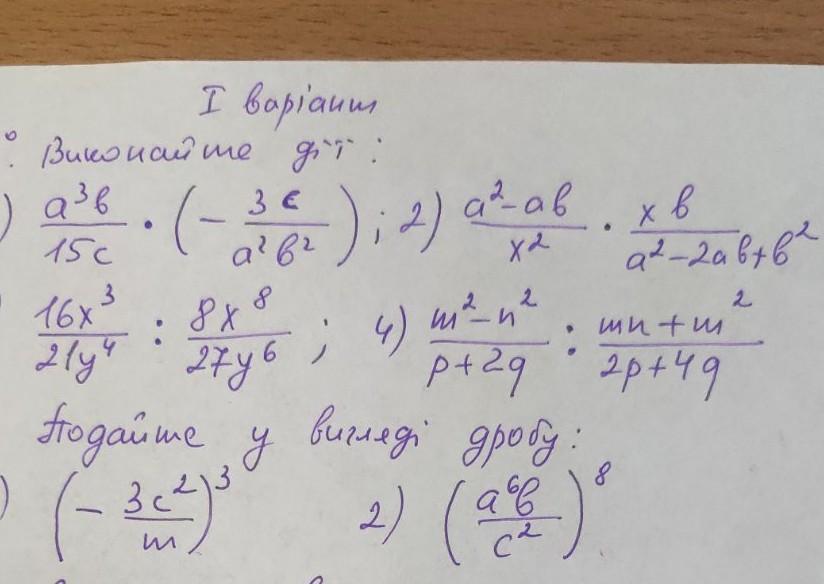 I варіант
°. Виконайте дії:
) a³b/15c · (− 3c/a²b²); 2) a²−ab/x² · xb/a²−2ab+b²
16x³/21y⁴ : 8x⁸/27y⁶; 4) m²−n²/p+2q : mn+m²/2p+4q
Подайте у вигляді дробу:
) (− 3c²/m)³ 2) (a⁶b/c²)⁸